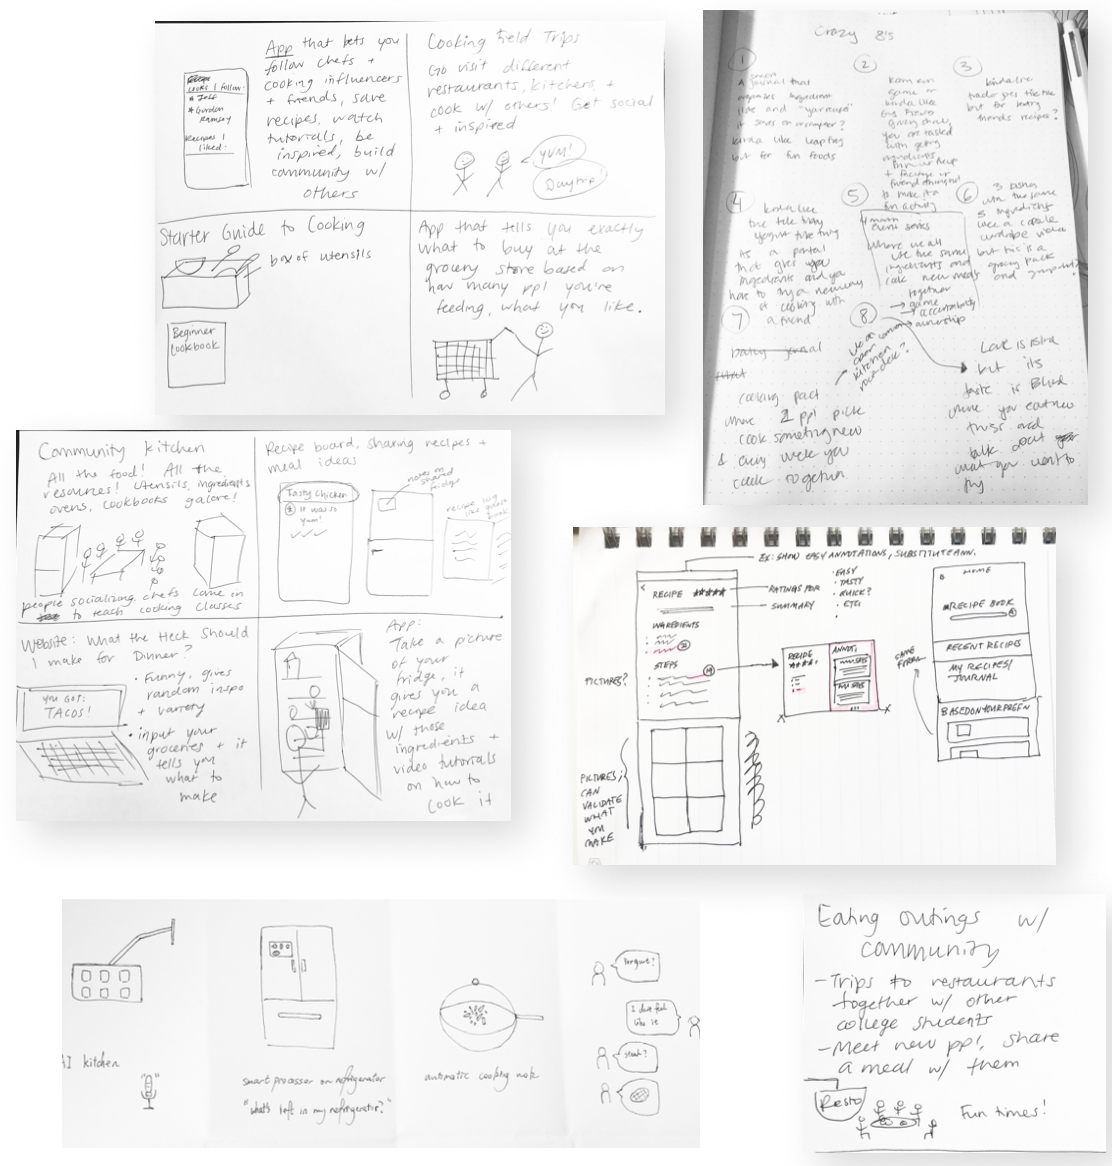 App that lets you
follow chefs +
cooking influencers
+ friends, save
recipes, watch
tutorials, be
inspired, build
community w/
others
cooks I follow:
Jeff
Gordon
Ramsay
Recipes I
liked:
Cooking Field Trips
Go visit different
restaurants, kitchens, +
cook w/ others! Get social
+ inspired
YUM!
Daytrip!
Starter Guide to Cooking
box of utensils
Beginner
Cookbook
App that tells you exactly
what to buy at the
grocery store based on
how many ppl you're
feeding, what you like.
Crazy 8's
1
A journal that
organizes ingredient
kinda like leap frog
but for fun foods
2
game or
kinda like
you are tasked
with getting
ingredients
fun activity
3
kinda like
trader joes
but for
friends recipes?
4
kinda like
the
yogurt tube thing
as a portal
that gives you
ingredients and you
have to try a new
at cooking with
a friend
5
4 month
event series
where we all
use the same
ingredients and
cook new meals
together
6
3 dishes
with the same
3 ingredients
like a capsule
wardrobe
but this is a
grocery pack
and
7
cooking pact
where 2 ppl pick
cook something new
& every week you
cook together
8
game
accountability
ownership
kitchen
Love is Blind
but its
taste is Blind
where you eat new
things and
talk about
what you want to
try
Community kitchen
All the food! All the
resources! Utensils, ingredients
ovens, cookbooks galore!
people socializing, chefs come in
to teach cooking classes
Recipe board, sharing recipes +
meal ideas
Tasty Chicken
it was so
yum!
notes on
shared
fridge
recipe log
like guest
book
Website: What the Heck Should
I make for Dinner?
• Funny, gives
random inspo
+ variety
YOU GOT:
TACOS!
• input your
groceries + it
tells you
what to
make
App:
Take a picture
of your
fridge, it
gives you a
recipe idea
w/ those
ingredients +
video tutorials
on how to
cook it
EX: SHOW EASY ANNOTATIONS, SUBSTITUTE ANN.
RECIPE
RATINGS FOR
SUMMARY
• EASY
• TASTY
• QUICK?
• ETC
INGREDIENTS
STEPS
PICTURES?
PICTURES;
CAN
VALIDATE
WHAT
YOU
MAKE
RECIPE
ANNOT:
SAME
HOME
RECIPE BOOK
RECENT RECIPES
MY RECIPES/
JOURNAL
BASED ON YOUR PREF'N
AI kitchen
smart processor on refrigerator
"what's left in my refrigerator?"
automatic cooking wok
Yogurt?
I don't feel
like it
steak?
Eating outings w/
community
- Trips to restaurants
together w/ other
college students
- Meet new ppl, share
a meal w/ them
Resto
Fun times!